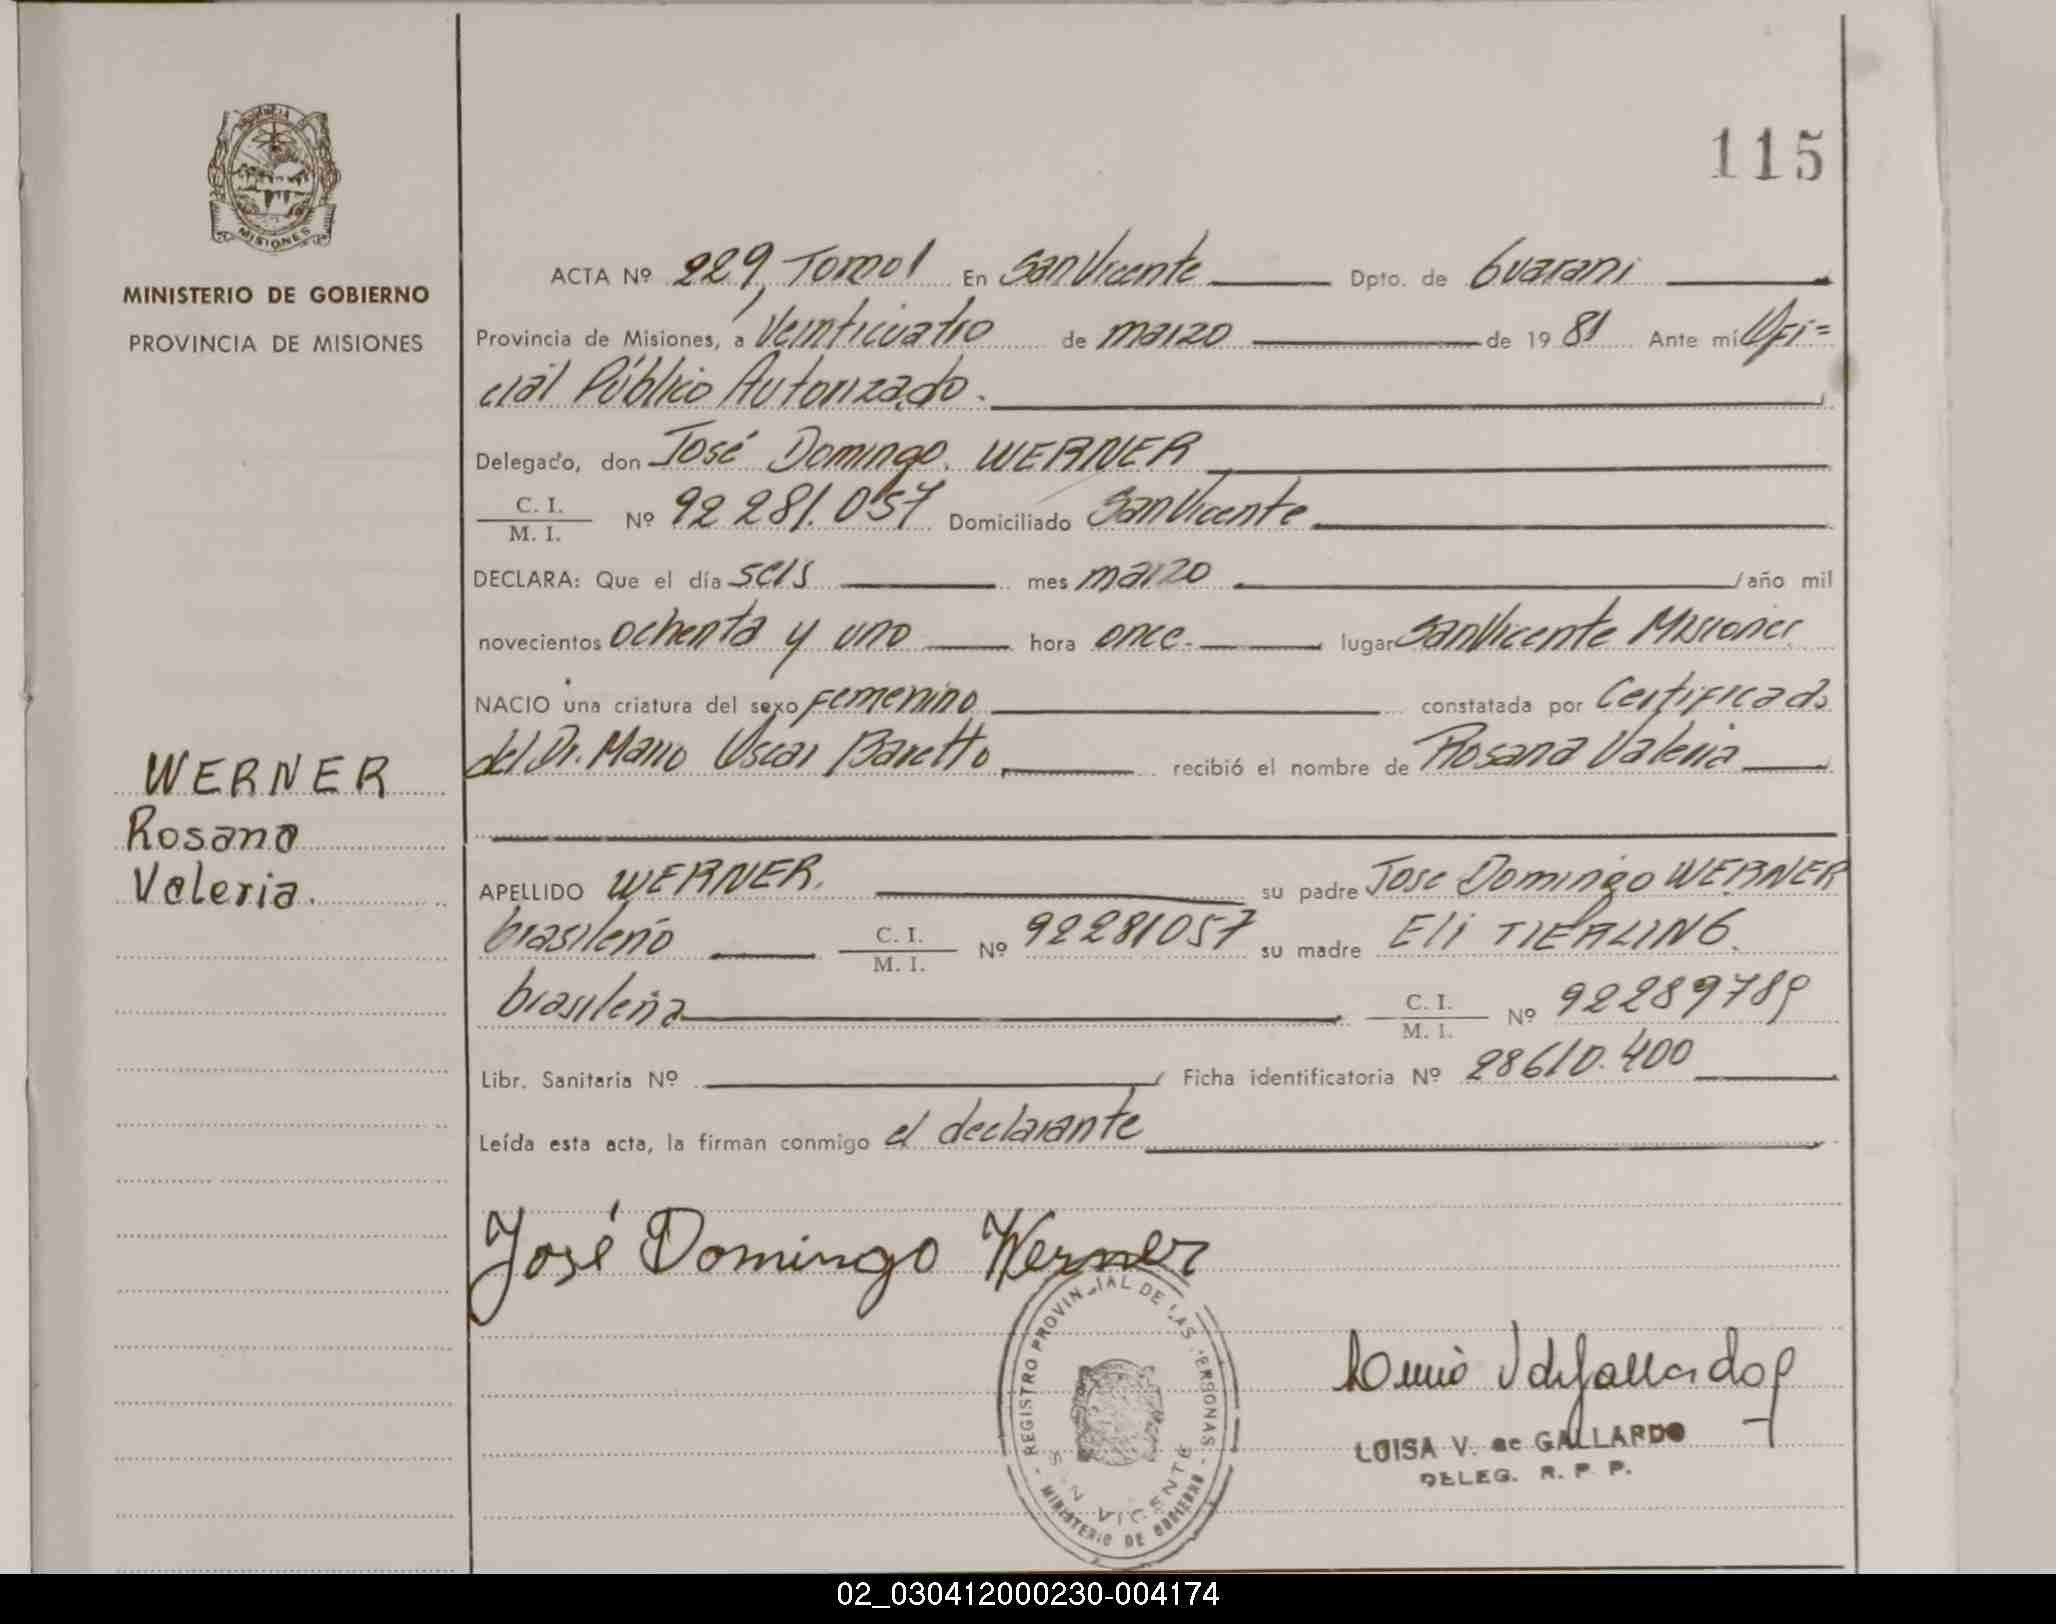 115
PROVINCIA DE
MISIONES
MINISTERIO DE GOBIERNO
PROVINCIA DE MISIONES
ACTA Nº 229, Tomo 1 En San Vicente Dpto. de Guarani
Provincia de Misiones, a Veinticuatro de marzo de 1981 Ante mí Ofi=
cial Público Autorizado.
Delegado, don José Domingo. WERNER
C. I.
M. I. Nº 92 281.057 Domiciliado San Vicente
DECLARA: Que el día seis mes marzo /año mil
novecientos ochenta y uno hora once. lugar San Vicente Misiones
NACIO una criatura del sexo Femenino constatada por Certificado
del Dr. Mario Oscar Baretto recibió el nombre de Rosana Valeria
WERNER
Rosana
Valeria.
APELLIDO WERNER. su padre Jose Domingo WERNER
brasileño C. I.
M. I. Nº 92281057 su madre Eli TIERLING.
brasileña C. I.
M. I. Nº 92289789
Libr. Sanitaria Nº Ficha identificatoria Nº 28610.400
Leída esta acta, la firman conmigo el declarante
José Domingo Werner
REGISTRO PROVINCIAL DE LAS PERSONAS
SAN VICENTE
MINISTERIO DE GOBIERNO
LUISA V. de GALLARDO
DELEG. R. P. P.
02_030412000230-004174